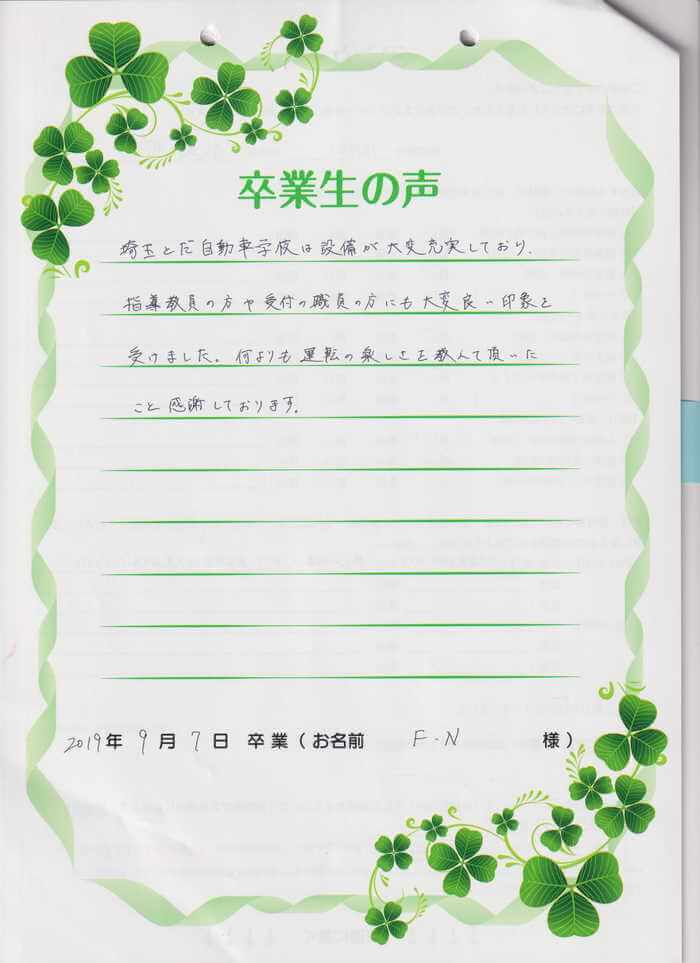 卒業生の声
埼玉とだ自動車学校は設備が大変充実しており、
指導教員の方や受付の職員の方にも大変良い印象を
受けました。何よりも運転の楽しさを教えて頂いた
こと感謝しております。
2019年 9月 7日 卒業(お名前 F.N 様)